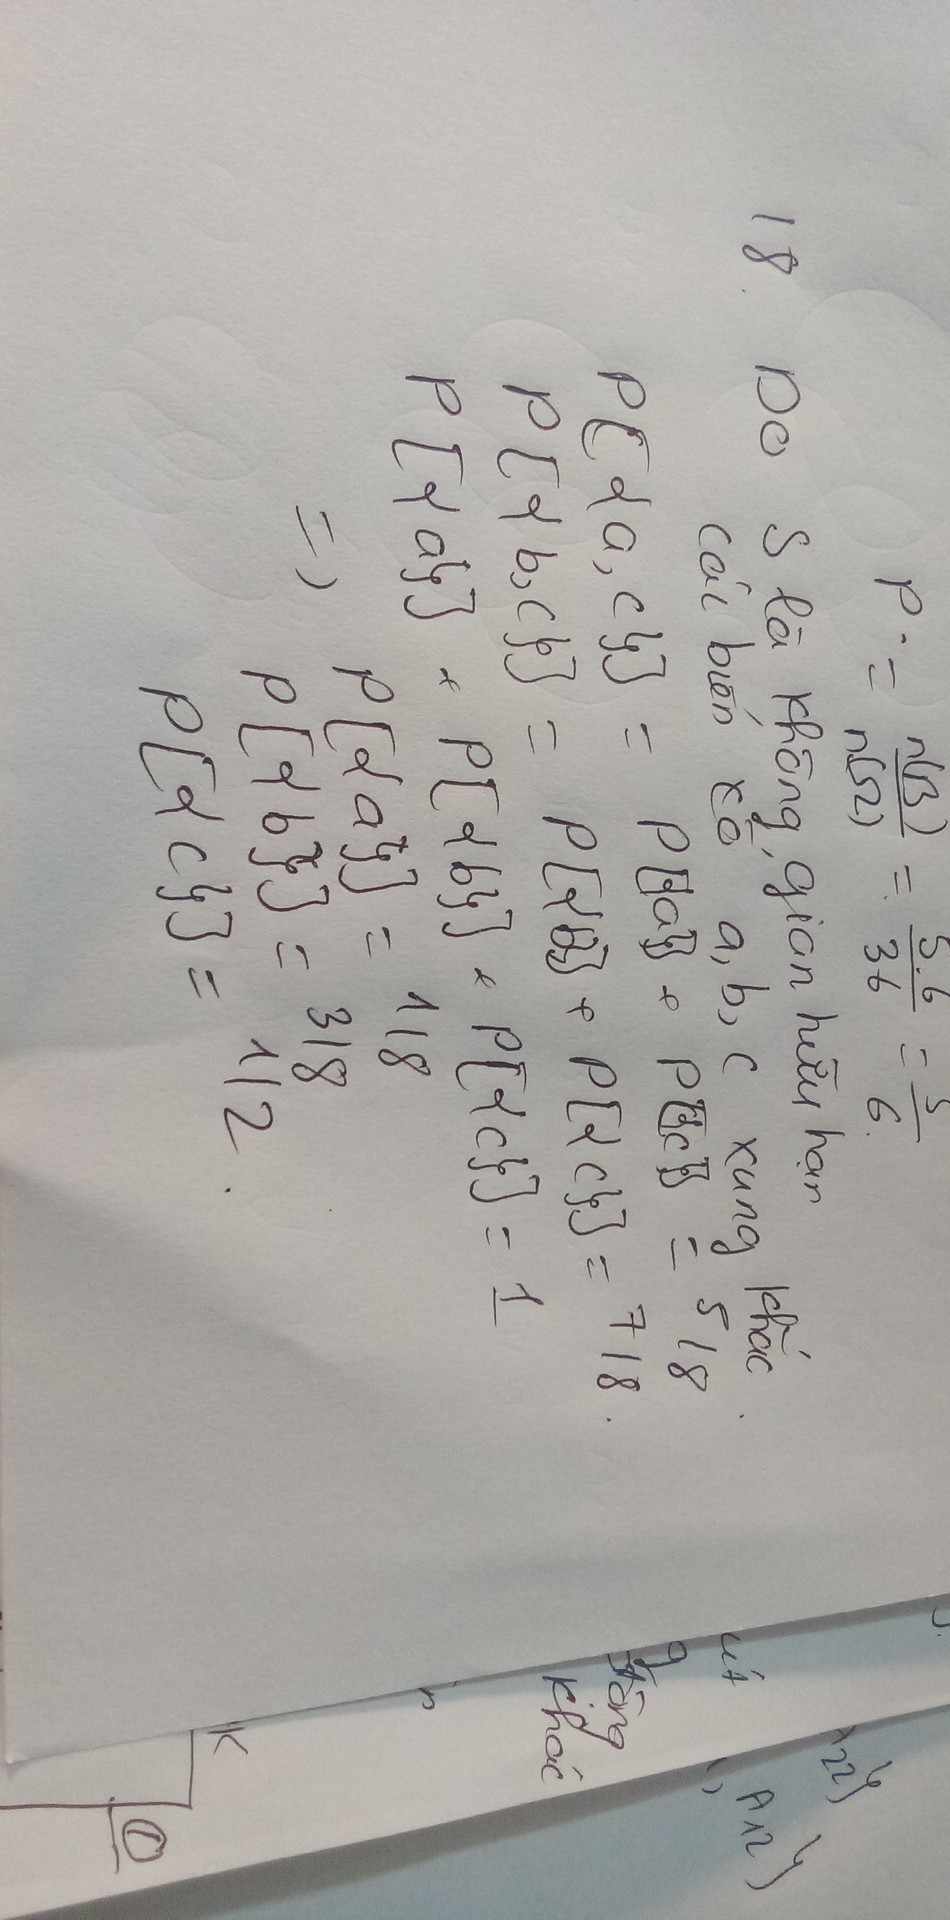 P = n(B)/n(Ω) = 5.6/36 = 5/6.
18. Do S là không gian hữu hạn
các biến cố a, b, c xung khắc.
P[{a, c}] = P[{a}] + P[{c}] = 5/8
P[{b, c}] = P[{b}] + P[{c}] = 7/8.
P[{a}] + P[{b}] + P[{c}] = 1
=> P[{a}] = 1/8
P[{b}] = 3/8
P[{c}] = 1/2.
A22}
, A12}
g
khác
n
K
1